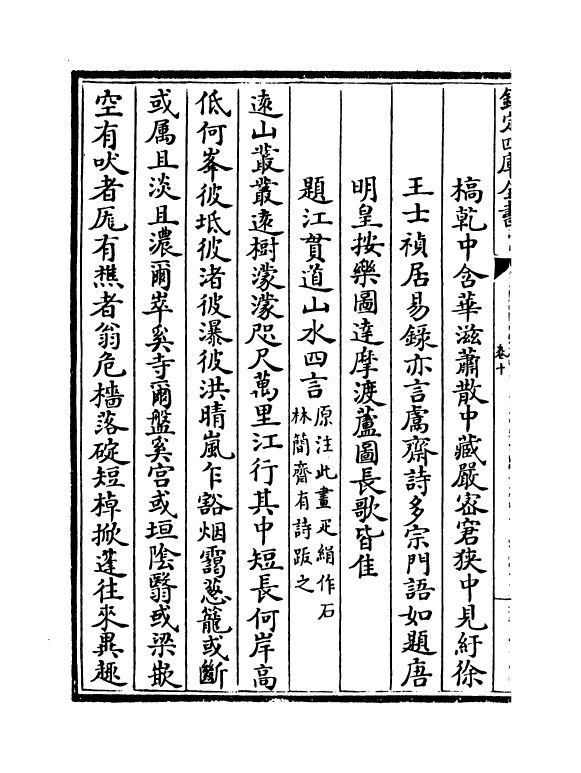 欽定四庫全書
卷十
槁乾中含華滋蕭散中藏嚴密窘狹中見紆徐
王士禎居易錄亦言鬳齋詩多宗門語如題唐
明皇按樂圖達摩渡蘆圖長歌皆佳
題江貫道山水四言
原注此畫疋絹作石
林簡齋有詩跋之
遠山叢叢遠樹濛濛咫尺萬里江行其中短長何岸高
低何峯彼坻彼渚彼瀑彼洪晴嵐乍豁烟靄葱籠或斷
或属且淡且濃爾崒奚寺爾盤奚宫或垣陰翳或梁嵌
空有吠者厖有樵者翁危檣落碇短棹掀蓬往來異趣